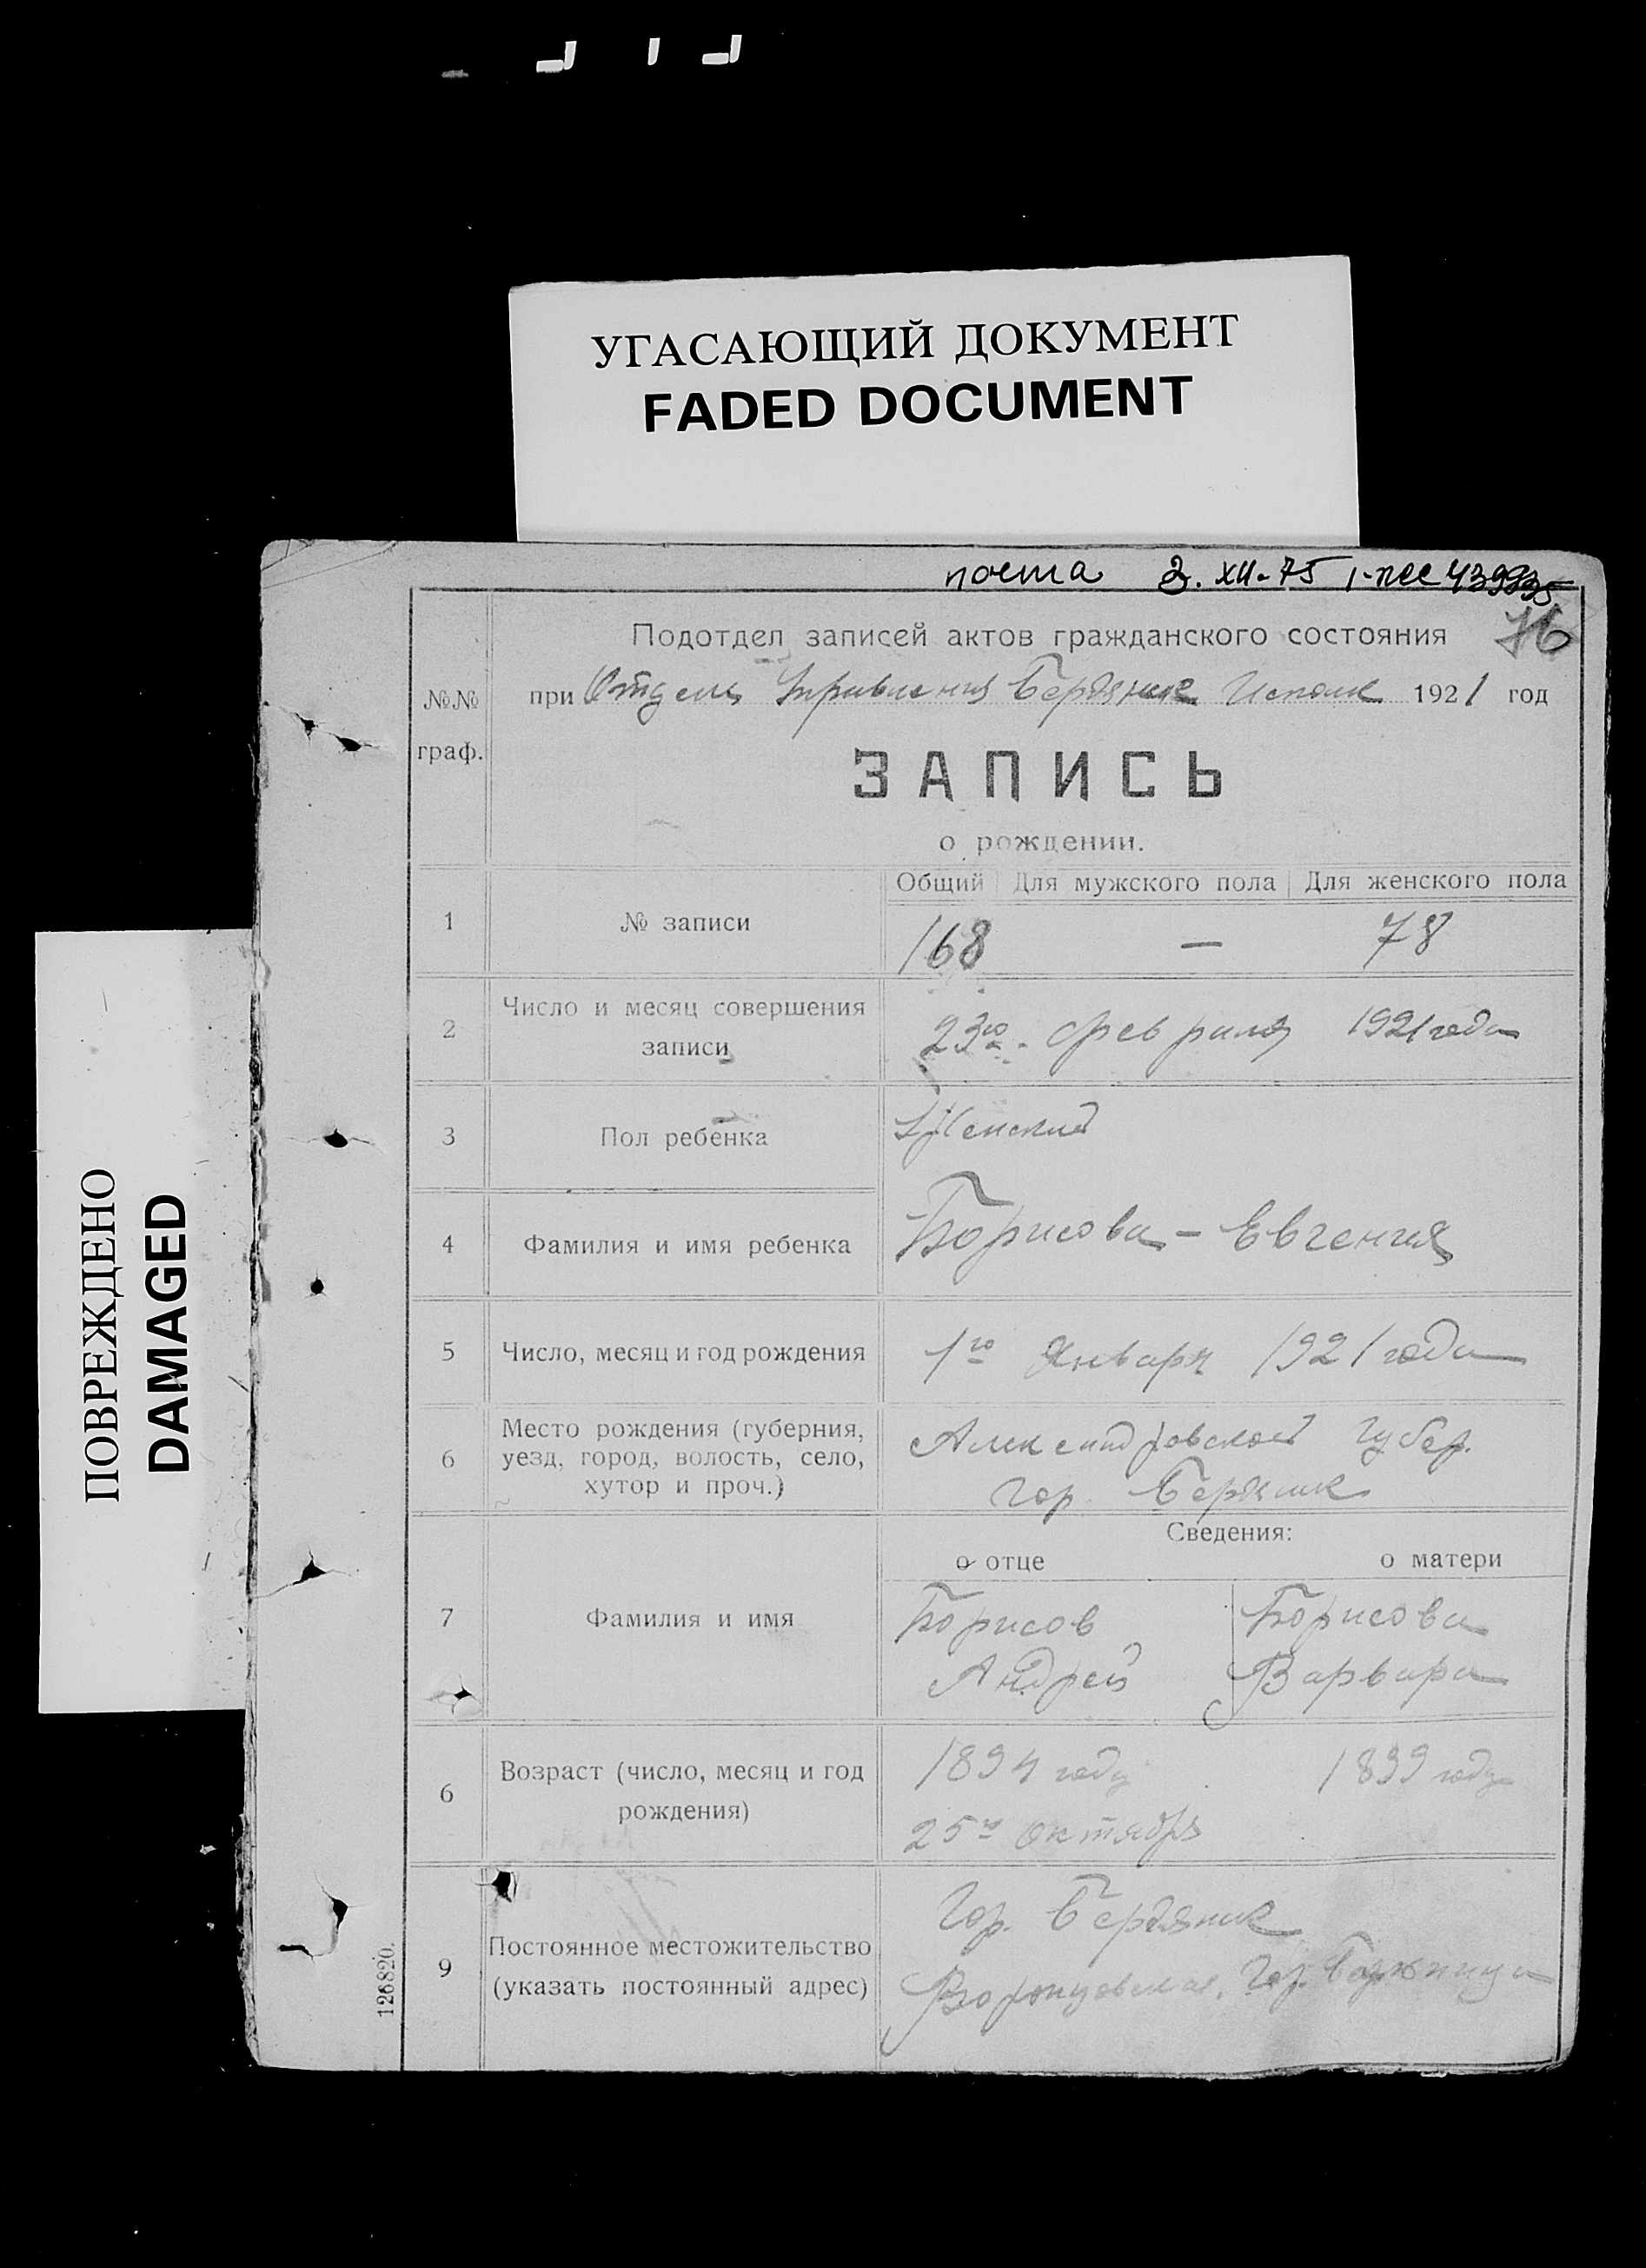 УГАСАЮЩИЙ ДОКУМЕНТ
FADED DOCUMENT
ПОВРЕЖДЕНО
DAMAGED
почта 3. XII-75
76
Подотдел записей актов гражданского состояния
при Отдела Управления Бердянск Исполк 1921 год
№№ граф.
ЗАПИСЬ
о рождении.
Общий Для мужского пола Для женского пола
1 № записи 168 — 78
2 Число и месяц совершения записи 23го февраля 1921 года
3 Пол ребенка Женский
4 Фамилия и имя ребенка Борисова - Евгения
5 Число, месяц и год рождения 1го Января 1921 года
6 Место рождения (губерния, уезд, город, волость, село, хутор и проч.) Александровской губер.
гор. Бердянск
Сведения:
о отце о матери
7 Фамилия и имя Борисов Борисова
Андрей Варвара
6 Возраст (число, месяц и год рождения) 1894 году 1899 году
25го октября
9 Постоянное местожительство (указать постоянный адрес) Гор. Бердянск
Воронцовская, Гор.
126820.